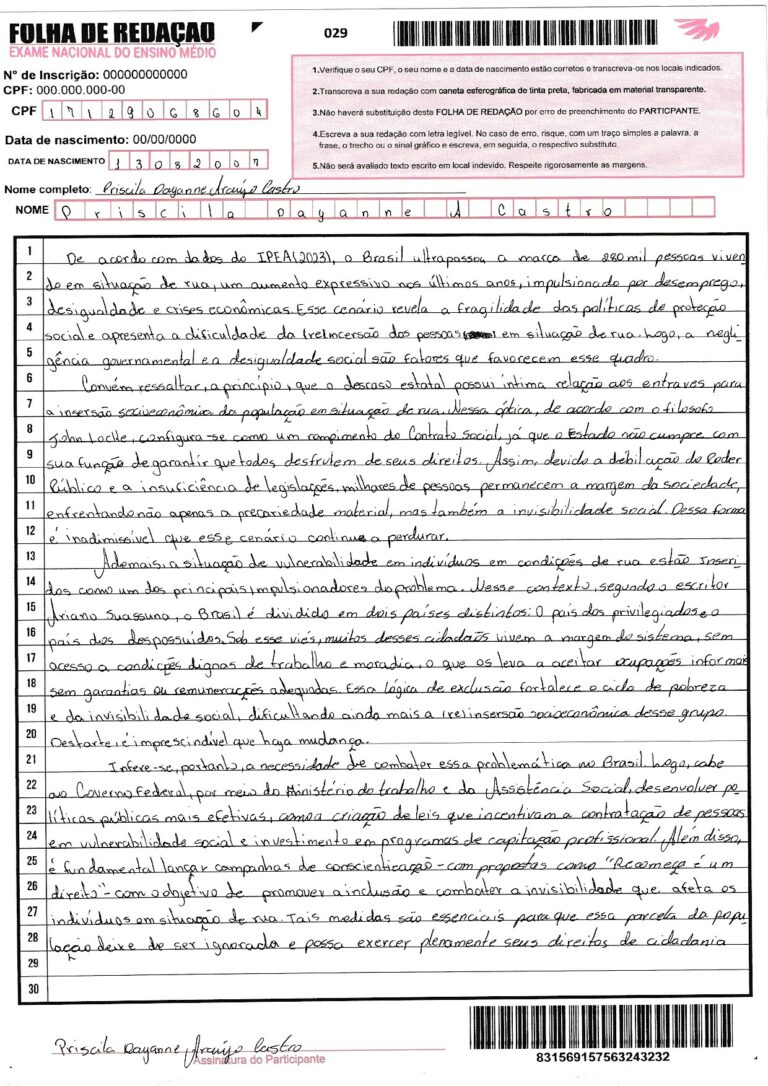 FOLHA DE REDAÇÃO
EXAME NACIONAL DO ENSINO MÉDIO
029
Nº de Inscrição: 000000000000
CPF: 000.000.000-00
CPF 17129068604
Data de nascimento: 00/00/0000
DATA DE NASCIMENTO 13082007
Nome completo: Priscila Dayanne Araújo Castro
NOME Priscila Dayanne A Castro
1.Verifique o seu CPF, o seu nome e a data de nascimento estão corretos e transcreva-os nos locais indicados.
2.Transcreva a sua redação com caneta esferográfica de tinta preta, fabricada em material transparente.
3.Não haverá substituição desta FOLHA DE REDAÇÃO por erro de preenchimento do PARTICPANTE.
4.Escreva a sua redação com letra legível. No caso de erro, risque, com um traço simples a palavra, a
frase, o trecho ou o sinal gráfico e escreva, em seguida, o respectivo substituto.
5.Não será avaliado texto escrito em local indevido. Respeite rigorosamente as margens.
1 De acordo com dados do IPEA(2023), o Brasil ultrapassou a marca de 280 mil pessoas viven
2 do em situação de rua, um aumento expressivo nos últimos anos, impulsionado por desemprego,
3 desigualdade e crises econômicas. Esse cenário revela a fragilidade das políticas de proteção
4 social e apresenta a dificuldade da (re)incersão das pessoas em situação de rua. Logo, a negli
5 gência governamental e a desigualdade social são fatores que favorecem esse quadro.
6 Convém ressaltar, a princípio, que o descaso estatal possui íntima relação aos entraves para
7 a insersão socioeconômica da população em situação de rua. Nessa óptica, de acordo com o filosofo
8 John Loclle, configura-se como um rompimento do Contrato Social, já que o Estado não cumpre com
9 sua função de garantir que todos desfrutem de seus direitos. Assim, devido a débil ação do Poder
10 Público e a insuficiência de legislações, milhares de pessoas permanecem a margem da sociedade,
11 enfrentando não apenas a precariedade material, mas também a invisibilidade social. Dessa forma
12 é inadimissível que esse cenário continue a perdurar.
13 Ademais, a situação de vulnerabilidade em indivíduos em condições de rua estão inseri
14 dos como um dos principais impulsionadores do problema. Nesse contexto, segundo o escritor
15 Ariano Suassuna, o Brasil é dividido em dois países distintos: O país dos privilegiados e o
16 país dos despossuídos. Sob esse viés, muitos desses cidadaõs vivem a margem do sistema, sem
17 acesso a condições dignas de trabalho e moradia, o que os leva a aceitar ocupações informais
18 sem garantias ou remunerações adequadas. Essa lógica de exclusão fortalece o ciclo de pobreza
19 e da invisibilidade social, dificultando ainda mais a (re)insersão socioeconômica desse grupo.
20 Destarte, é imprescindível que haja mudança.
21 Infere-se, portanto, a necessidade de combater essa problemática no Brasil. Logo, cabe
22 ao Governo Federal, por meio do Ministério do trabalho e da Assistência Social, desenvolver po
23 líticas públicas mais efetivas, como a criação de leis que incentivam a contratação de pessoas
24 em vulnerabilidade social e investimento em programas de capitação profissional. Além disso,
25 é fundamental lançar campanhas de conscienticação-com propostas como "Recomeço é um
26 direito"-com o objetivo de promover a inclusão e combater a invisibilidade que afeta os
27 indivíduos em situação de rua. Tais medidas são essenciais para que essa parcela da popu
28 lação deixe de ser ignorada e possa exercer plenamente seus direitos de cidadania
29
30
Priscila Dayanne Araújo Castro
Assinatura do Participante
831569157563243232